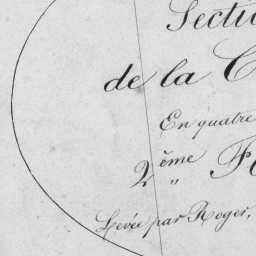 Secti
de la C
En quatre
2ème
Levée par Roger,